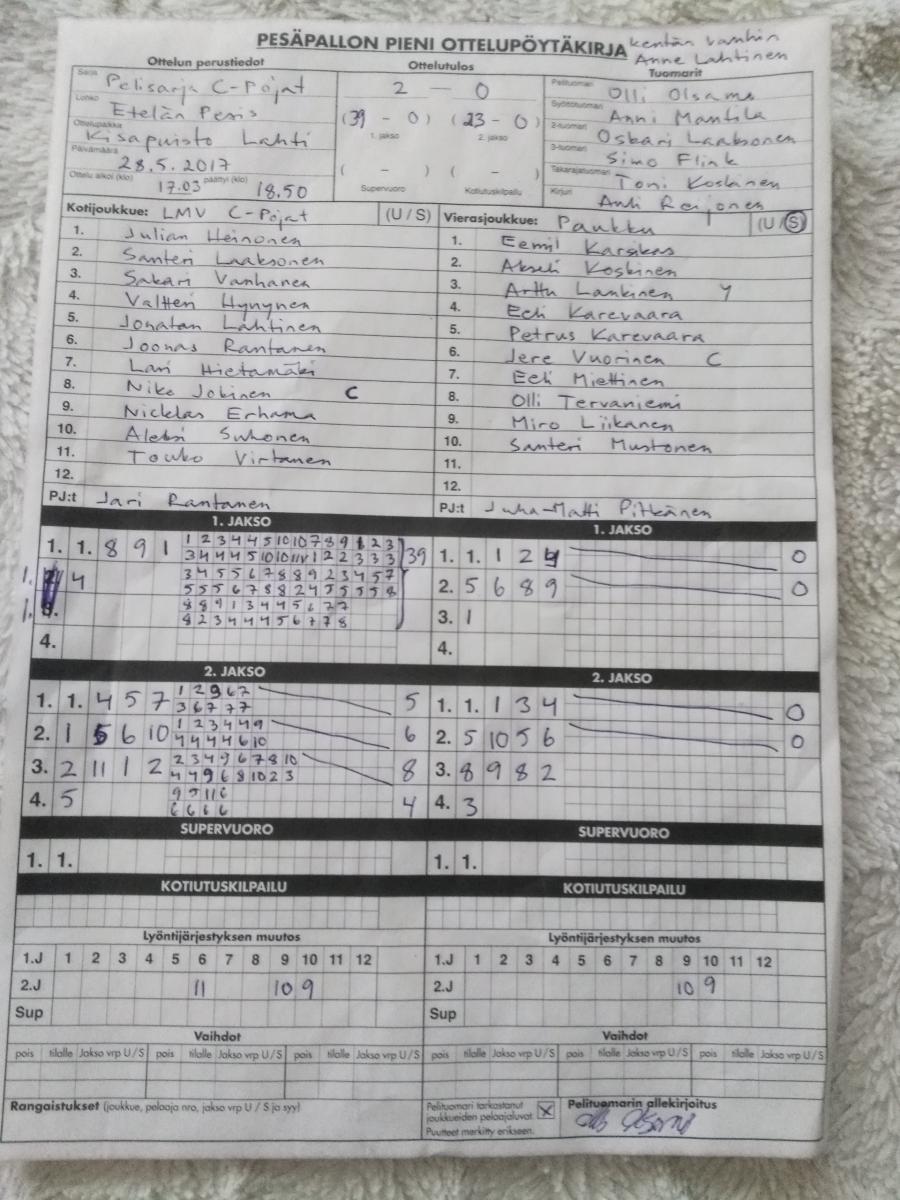 PESÄPALLON PIENI OTTELUPÖYTÄKIRJA
kentän vanhin
Anne Lahtinen
Ottelun perustiedot
Sarja Pelisarja C-Pojat
Lohko Etelän Pesis
Ottelupaikka Kisapuisto Lahti
Päivämäärä 28.5.2017
Ottelu alkoi (klo) 17.03 päättyi (klo) 18.50
Ottelutulos
2 - 0
(39 - 0) (23 - 0)
1. jakso 2. jakso
( - ) ( - )
Supervuoro Kotiutuskilpailu
Tuomarit
Pelituomari Olli Olsamo
Syöttötuomari Anni Mantila
2-tuomari Oskari Laaksonen
3-tuomari Simo Flink
Takarajatuomari Toni Koskinen
Kirjuri Antti
Kotijoukkue: LMV C-Pojat (U / S)
1. Julian Heinonen
2. Santeri Laaksonen
3. Sakari Vanhanen
4. Valtteri Hynynen
5. Jonatan Lahtinen
6. Joonas Rantanen
7. Lari Hietamäki
8. Niko Jokinen C
9. Nicklas Erhama
10. Aleksi Suhonen
11. Touko Virtanen
12.
PJ:t Jari Rantanen
Vierasjoukkue: Paukku (U / S)
1. Eemil Karsikas
2. Akseli Koskinen
3. Arttu Lankinen Y
4. Eeli Karevaara
5. Petrus Karevaara
6. Jere Vuorinen C
7. Eeli Miettinen
8. Olli Tervaniemi
9. Miro Liikanen
10. Santeri Mustonen
11.
12.
PJ:t Juha-Matti Pitkänen
1. JAKSO
1. 1. 8 9 1
1 2 3 4 4 5 10 10 7 8 9 1 2 3
3 4 4 4 5 10 10 11 1 2 2 3 3 3
39
1. 4
3 4 5 5 6 7 8 8 9 2 3 4 5 7
5 5 5 6 7 8 8 2 4 5 5 5 5 8
1.
8 8 9 1 3 4 4 5 6 7 7
8 2 3 4 4 4 5 6 7 7 8
4.
1. JAKSO
1. 1. 1 2 4 0
2. 5 6 8 9 0
3. 1
4.
2. JAKSO
1. 1. 4 5 7
1 2 9 6 7
3 6 7 7 7
5
2. 1 5 6 10
1 2 3 4 4 9
4 4 4 4 6 10
6
3. 2 11 1 2
2 3 4 9 6 7 8 10
4 4 9 6 8 10 2 3
8
4. 5
9 5 11 6
6 6 6 6
4
2. JAKSO
1. 1. 1 3 4 0
2. 5 10 5 6 0
3. 8 9 8 2
4. 3
SUPERVUORO
1. 1.
SUPERVUORO
1. 1.
KOTIUTUSKILPAILU
KOTIUTUSKILPAILU
Lyöntijärjestyksen muutos
1.J 1 2 3 4 5 6 7 8 9 10 11 12
2.J 11 10 9
Sup
Lyöntijärjestyksen muutos
1.J 1 2 3 4 5 6 7 8 9 10 11 12
2.J 10 9
Sup
Vaihdot
pois tilalle Jakso vrp U / S pois tilalle Jakso vrp U / S pois tilalle Jakso vrp U / S
Vaihdot
pois tilalle Jakso vrp U / S pois tilalle Jakso vrp U / S pois tilalle Jakso vrp U / S
Rangaistukset (joukkue, pelaaja nro, jakso vrp U / S ja syy)
Pelituomari tarkastanut
joukkueiden pelaajaluvat
Puutteet merkitty erikseen.
Pelituomarin allekirjoitus